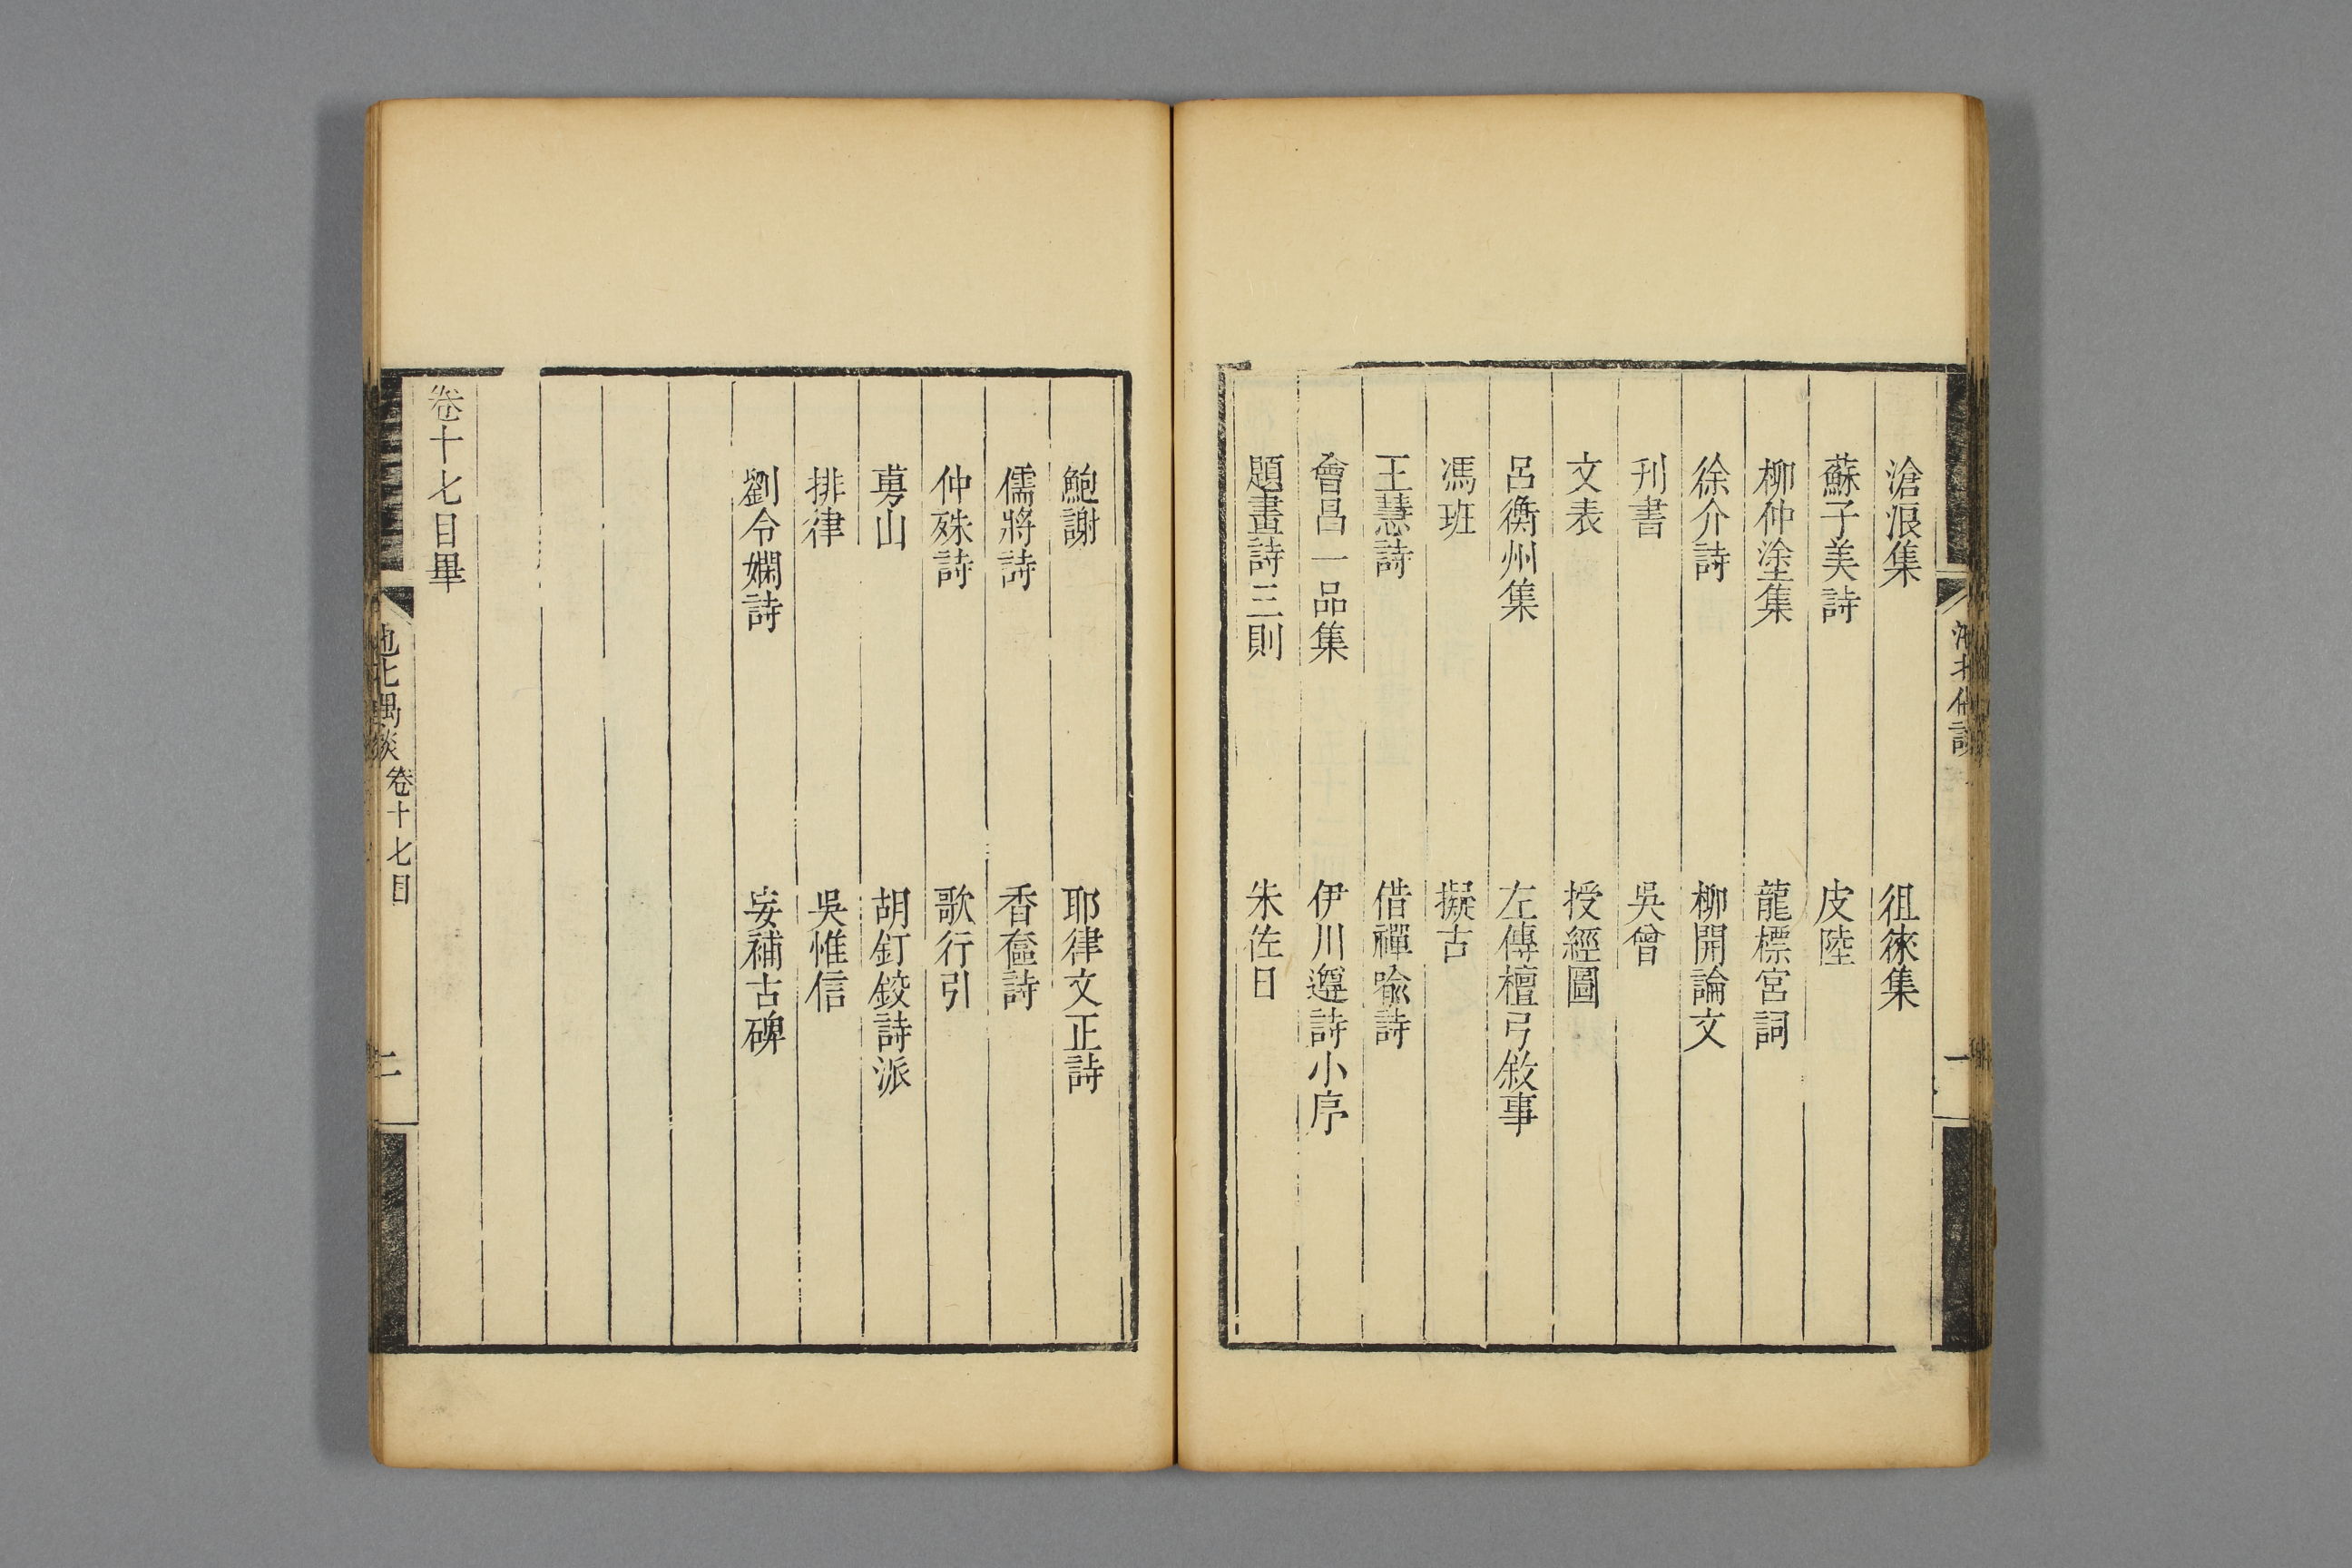 滄浪集　徂徠集
蘇子美詩　皮陸
柳仲塗集　龍標宮詞
徐介詩　柳開論文
刋書　吳曾
文表　授經圖
呂衡州集　左傳檀弓敘事
馮班　擬古
王慧詩　借禪喻詩
會昌一品集　伊川遵詩小序
題畫詩三則　朱佐日
鮑謝　耶律文正詩
儒將詩　香奩詩
仲殊詩　歌行引
甹山　胡釘鉸詩派
排律　吳惟信
劉令嫻詩　妄補古碑
卷十七目畢
池北偶談　卷十七目　二